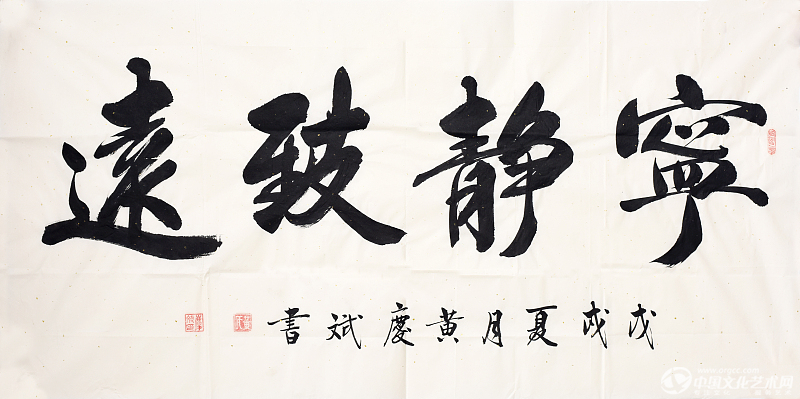 寧靜致遠
戊戌夏月黄慶斌書
中国文化艺术网